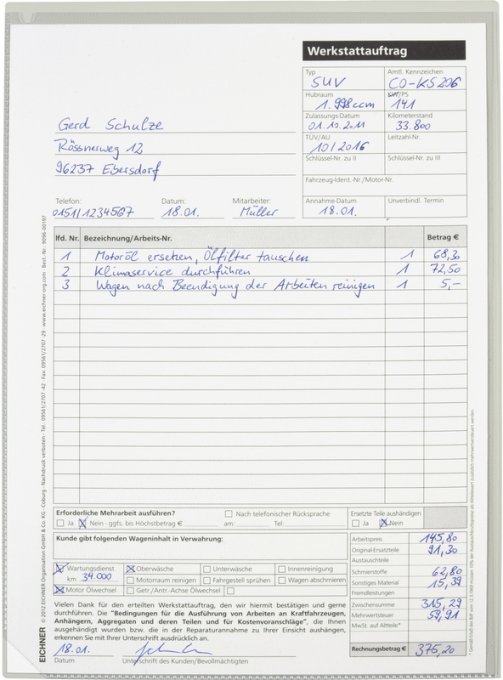 Werkstattauftrag
Typ
Amtl. Kennzeichen
SUV
CO-KS 206
Hubraum
kW/PS
1.998 ccm
141
Zulassungs-Datum
Kilometerstand
01.10.2011
33.800
TÜV/AU
Leitzahl Nr.
10/2016
Schlüssel-Nr. zu II
Schlüssel-Nr. zu III
Fahrzeug-Ident.-Nr./Motor-Nr.
Gerd Schulze
Rössnerweg 12
96237 Ebersdorf
Telefon:
Datum:
Mitarbeiter:
Annahme-Datum
Unverbindl. Termin
0151/1234567
18.01.
Müller
18.01.
lfd. Nr.
Bezeichnung/Arbeits-Nr.
Betrag €
1 Motoröl ersetzen, Ölfilter tauschen 1 68,30
2 Klimaservice durchführen 1 72,50
3 Wagen nach Beendigung der Arbeiten reinigen 1 5,-
Erforderliche Mehrarbeit ausführen?
Nach telefonischer Rücksprache
Ja Nein - ggfs. bis Höchstbetrag €
am: Tel:
Ersetzte Teile aushändigen
Ja Nein
Kunde gibt folgenden Wageninhalt in Verwahrung:
Wartungsdienst
Oberwäsche
Unterwäsche
Innenreinigung
km 34.000
Motorraum reinigen
Fahrgestell sprühen
Wagen abschmieren
Motor Ölwechsel
Getr./Antr.-Achse Ölwechsel
Arbeitspreis 145,80
Original-Ersatzteile 91,30
Austauschteile
Schmierstoffe 62,80
Sonstiges Material 15,39
Fremdleistungen
Zwischensumme 315,29
Mehrwertsteuer 59,91
MwSt. auf Altteile*
Rechnungsbetrag € 375,20
Vielen Dank für den erteilten Werkstattauftrag, den wir hiermit bestätigen und gerne
durchführen. Die "Bedingungen für die Ausführung von Arbeiten an Kraftfahrzeugen,
Anhängern, Aggregaten und deren Teilen und für Kostenvoranschläge", die Ihnen
ausgehändigt wurden bzw. die in der Reparaturannahme zu Ihrer Einsicht aushängen,
erkennen Sie mit Ihrer Unterschrift ausdrücklich an.
18.01.
Datum
Unterschrift des Kunden/Bevollmächtigten
EICHNER © 2012 EICHNER Organisation GmbH & Co. KG · Coburg · Nachdruck verboten · Tel.: 09561/2707-42 · Fax: 09561/2707-29 · www.eichner-org.com · Best.-Nr.: 9096-00197